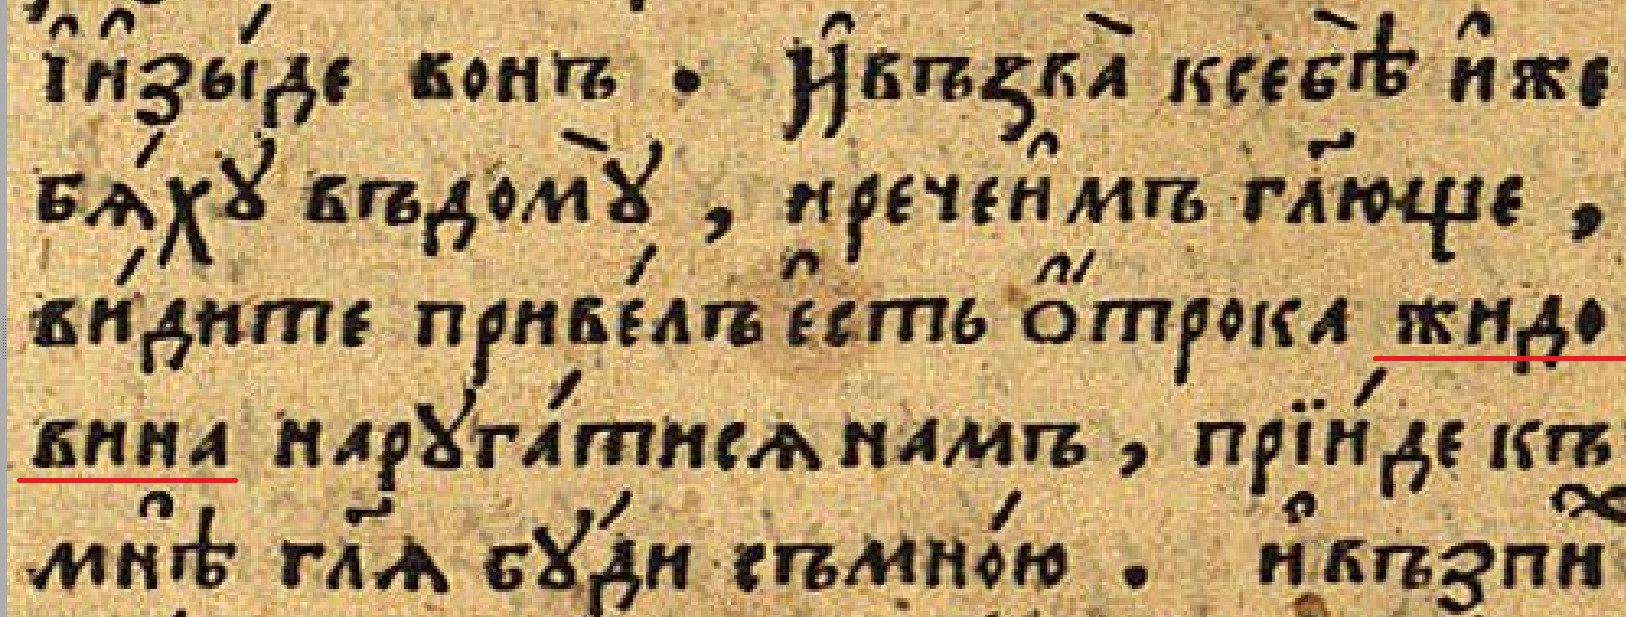 і҆и҆зы́де вонъ . И҆възва̀ ксебѣ̀ и҆же
бѧ́хꙋ въдомꙋ̀ , иречеи҆мъ гл҃юще ,
ви́дите приве́лъ е҆сть о҆́трока жидо
вина нарꙋга́тисѧ намъ , прїи́де къ
мни҆ѣ гл҃ѧ бꙋ́ди съмно́ю . и҆възпи